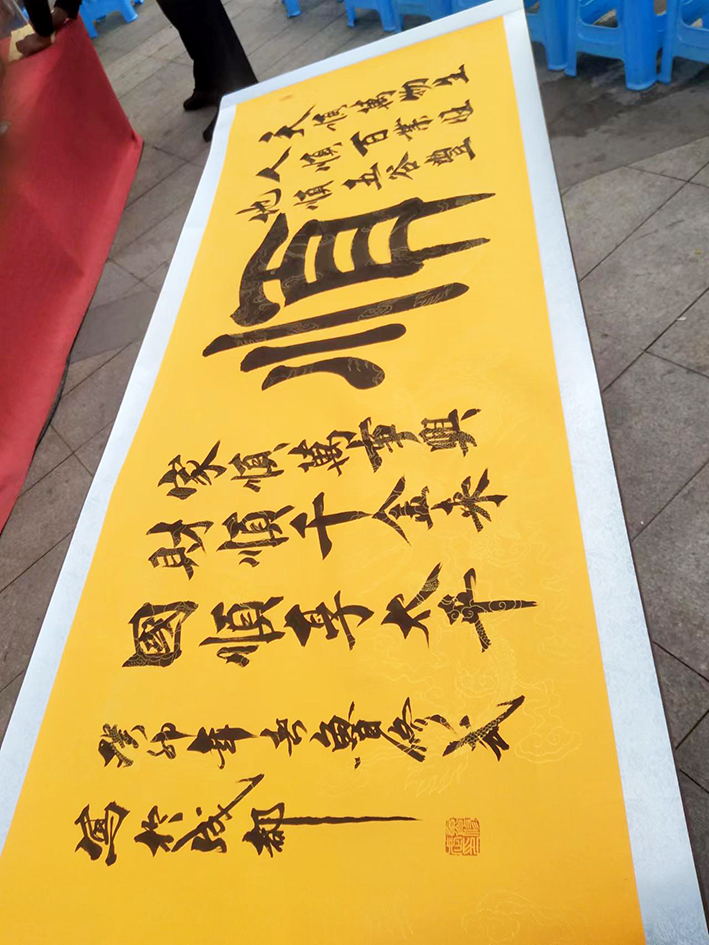 天順萬物生
人順百業旺
地順五谷豐
順
家順萬事興
財順千金來
國順享太平
癸卯年
寫於成都